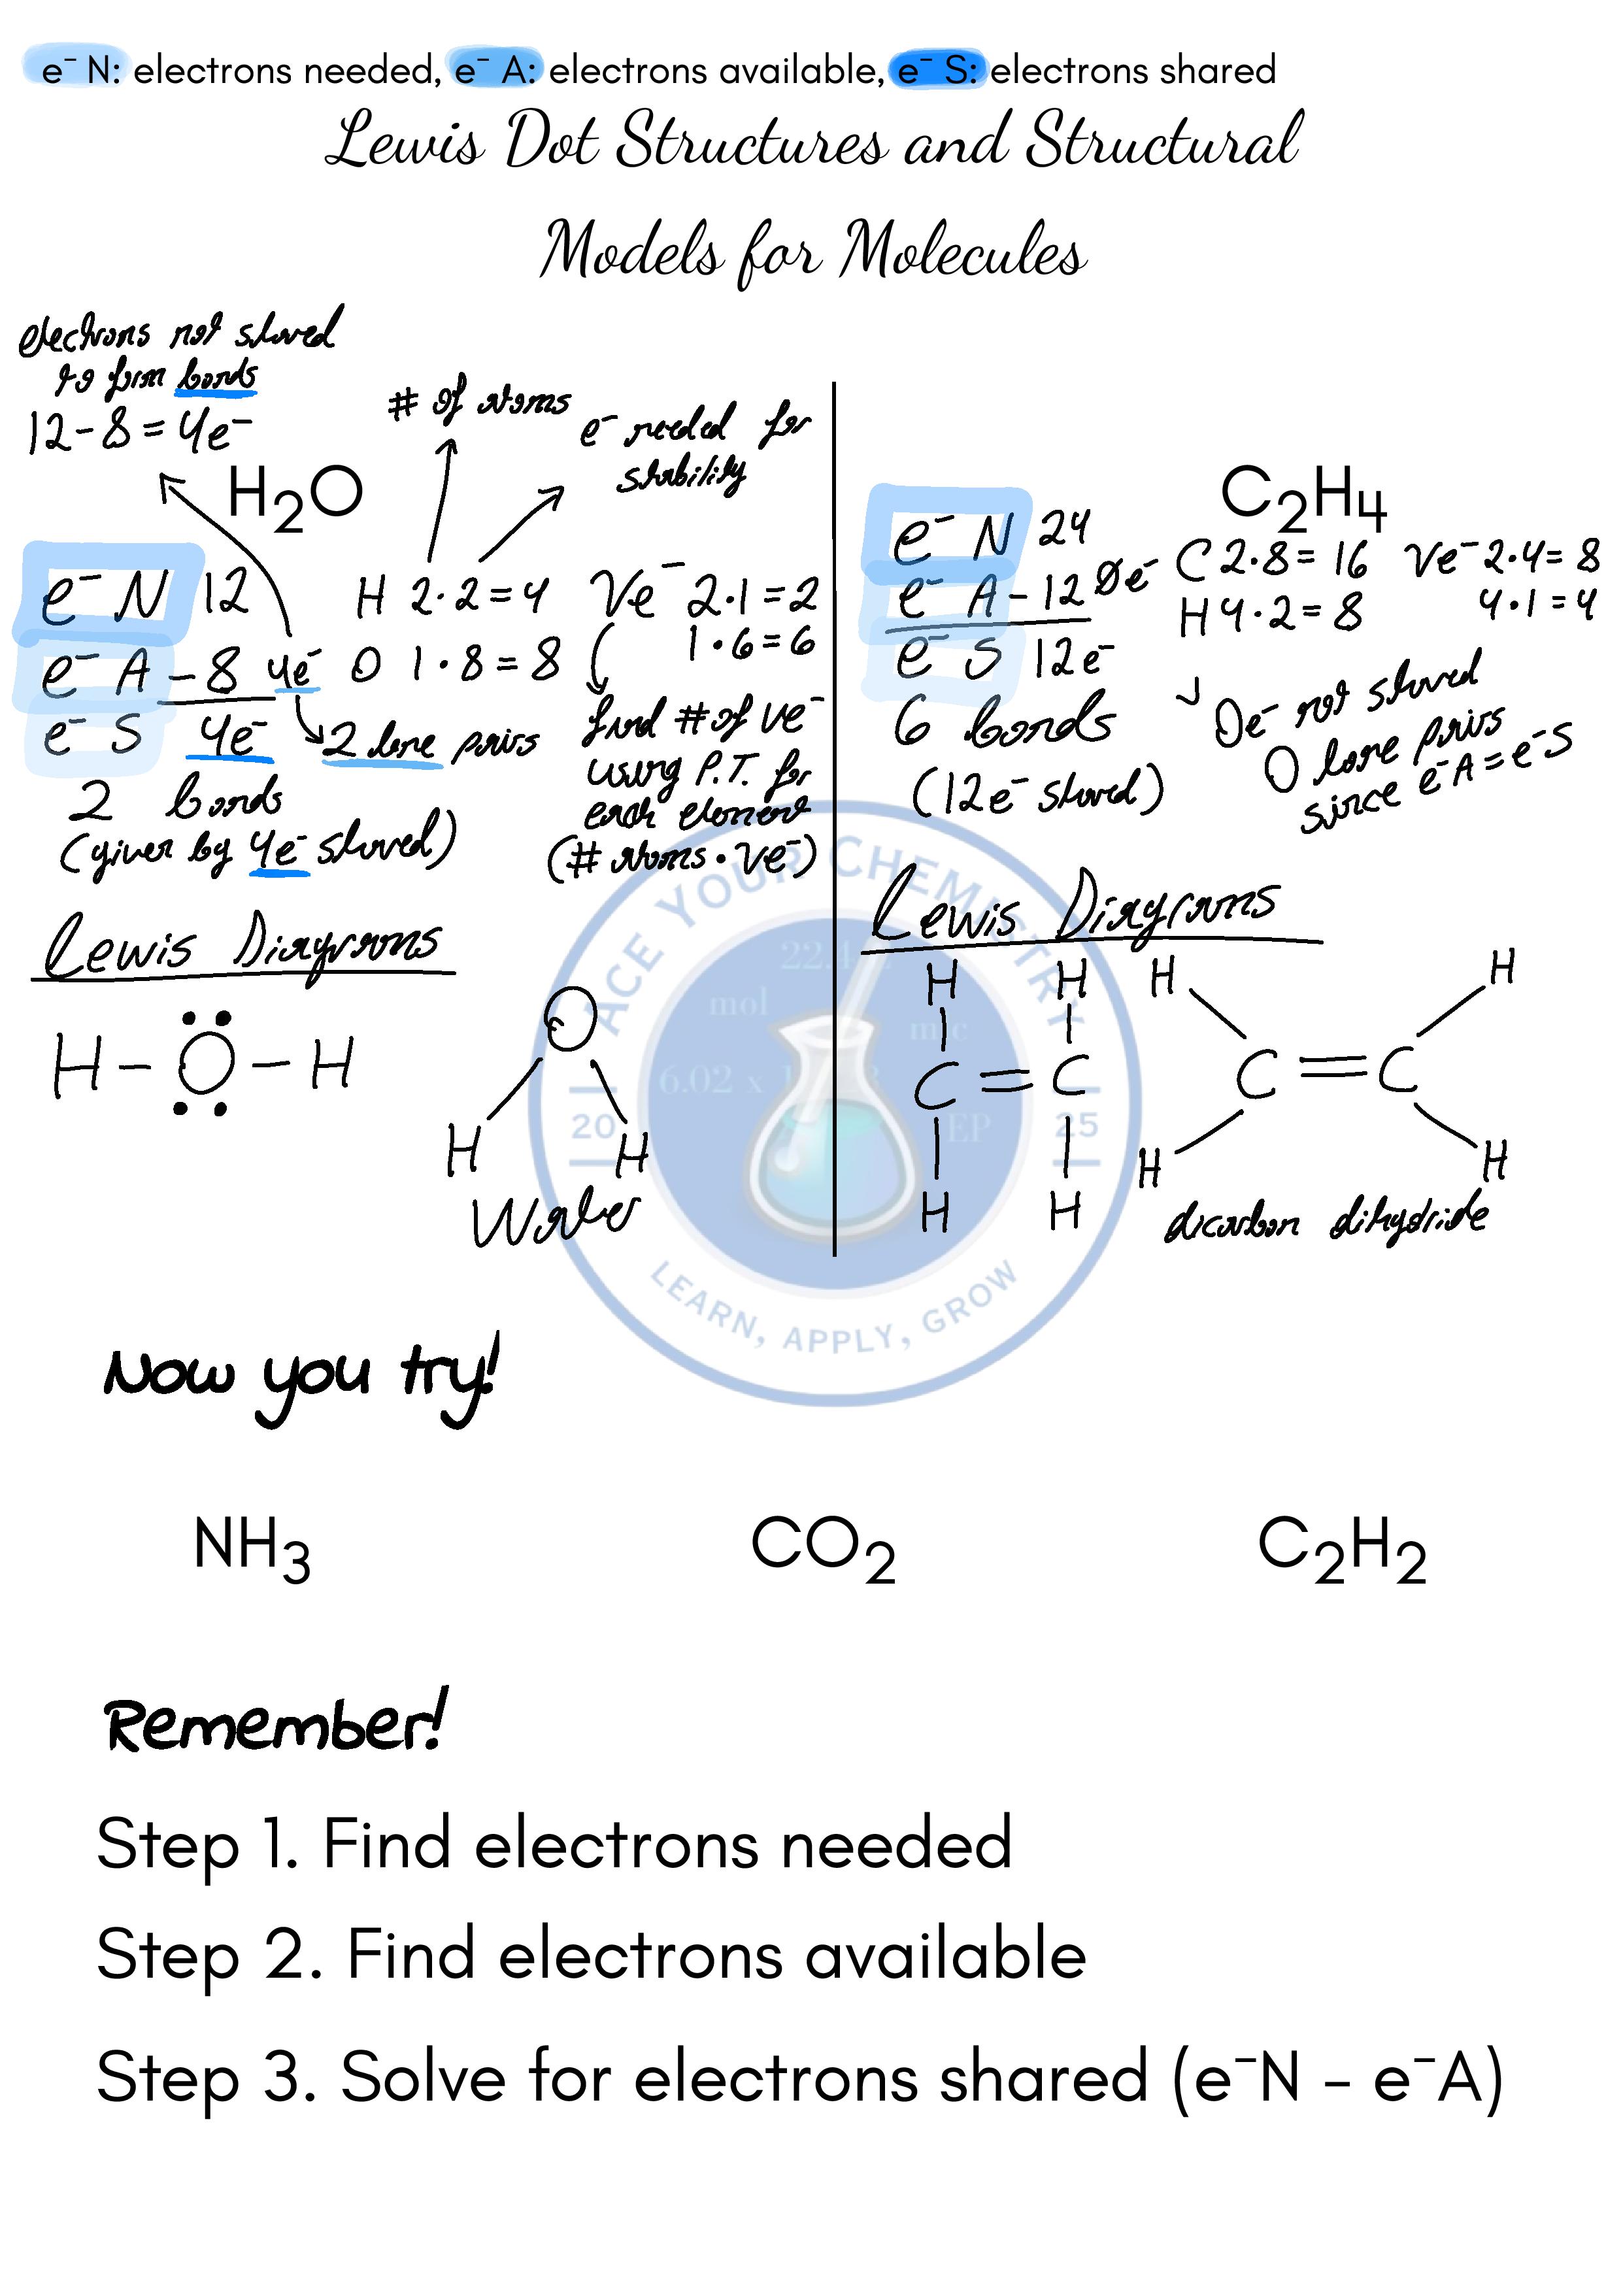 e⁻ N: electrons needed, e⁻ A: electrons available, e⁻ S: electrons shared
Lewis Dot Structures and Structural
Models for Molecules
electrons not shared
to form bonds
12-8=4e⁻
# of atoms
e⁻ needed for
stability
H₂O
e⁻ N 12
e⁻ A -8 4e⁻
e⁻ S 4e⁻
H 2·2=4
O 1·8=8
Ve⁻ 2·1=2
1·6=6
2 lone pairs
find # of ve⁻
using P.T. for
each element
(# atoms·ve⁻)
2 bonds
(given by 4e⁻ shared)
Lewis Diagrams
H-O-H
O
H H
Water
C₂H₄
e⁻ N 24
e⁻ A -12 0e⁻
e⁻ S 12e⁻
C 2·8=16
H 4·2=8
Ve⁻ 2·4=8
4·1=4
6 bonds
(12e⁻ shared)
0e⁻ not shared
0 lone pairs
since e⁻A=e⁻S
Lewis Diagrams
H H
C=C
H H
H H
C=C
H H
dicarbon dihydride
ACE YOUR CHEMISTRY
22.4
mol
6.02 x
EP
20 25
LEARN, APPLY, GROW
Now you try!
NH₃ CO₂ C₂H₂
Remember!
Step 1. Find electrons needed
Step 2. Find electrons available
Step 3. Solve for electrons shared (e⁻N - e⁻A)